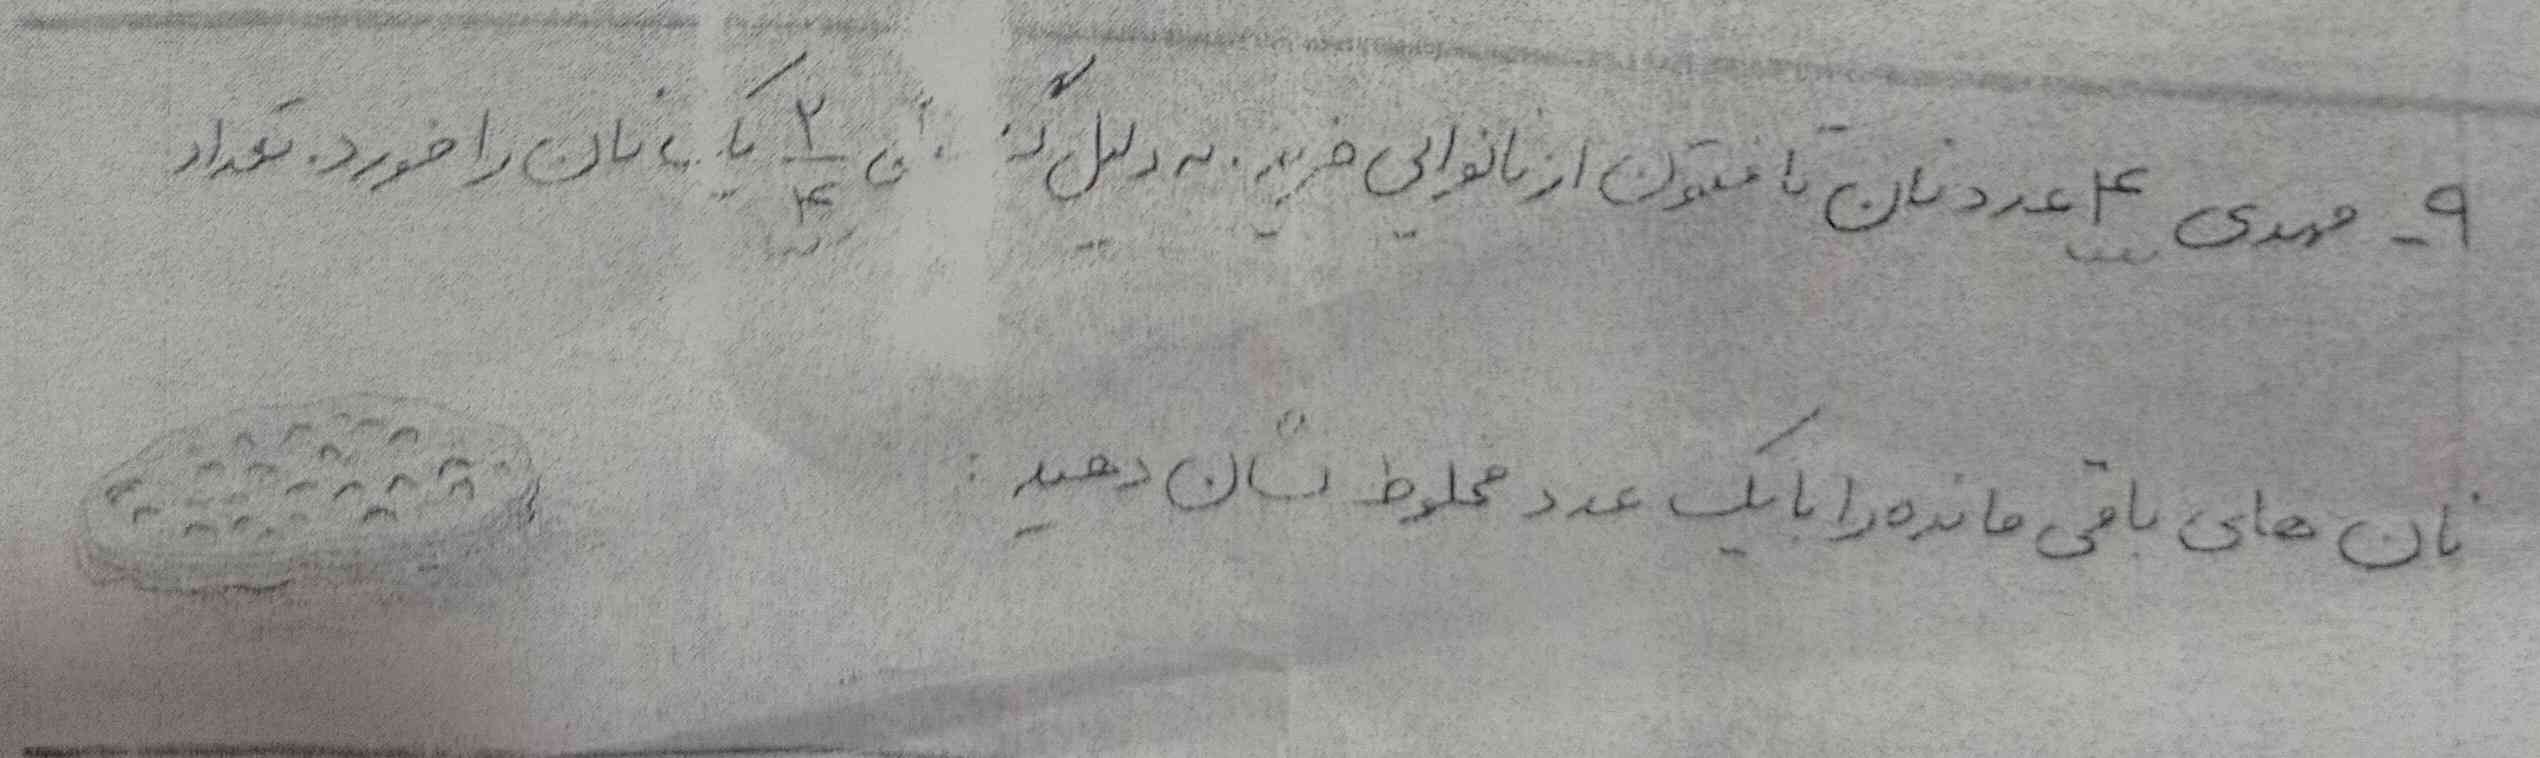 ۹ـ مهدی ۴ عدد نان تافتون از نانوایی خرید. به دلیل ۲/۴ یک نان را خورد. تعداد
نان های باقی مانده را با یک عدد مخلوط نشان دهید :